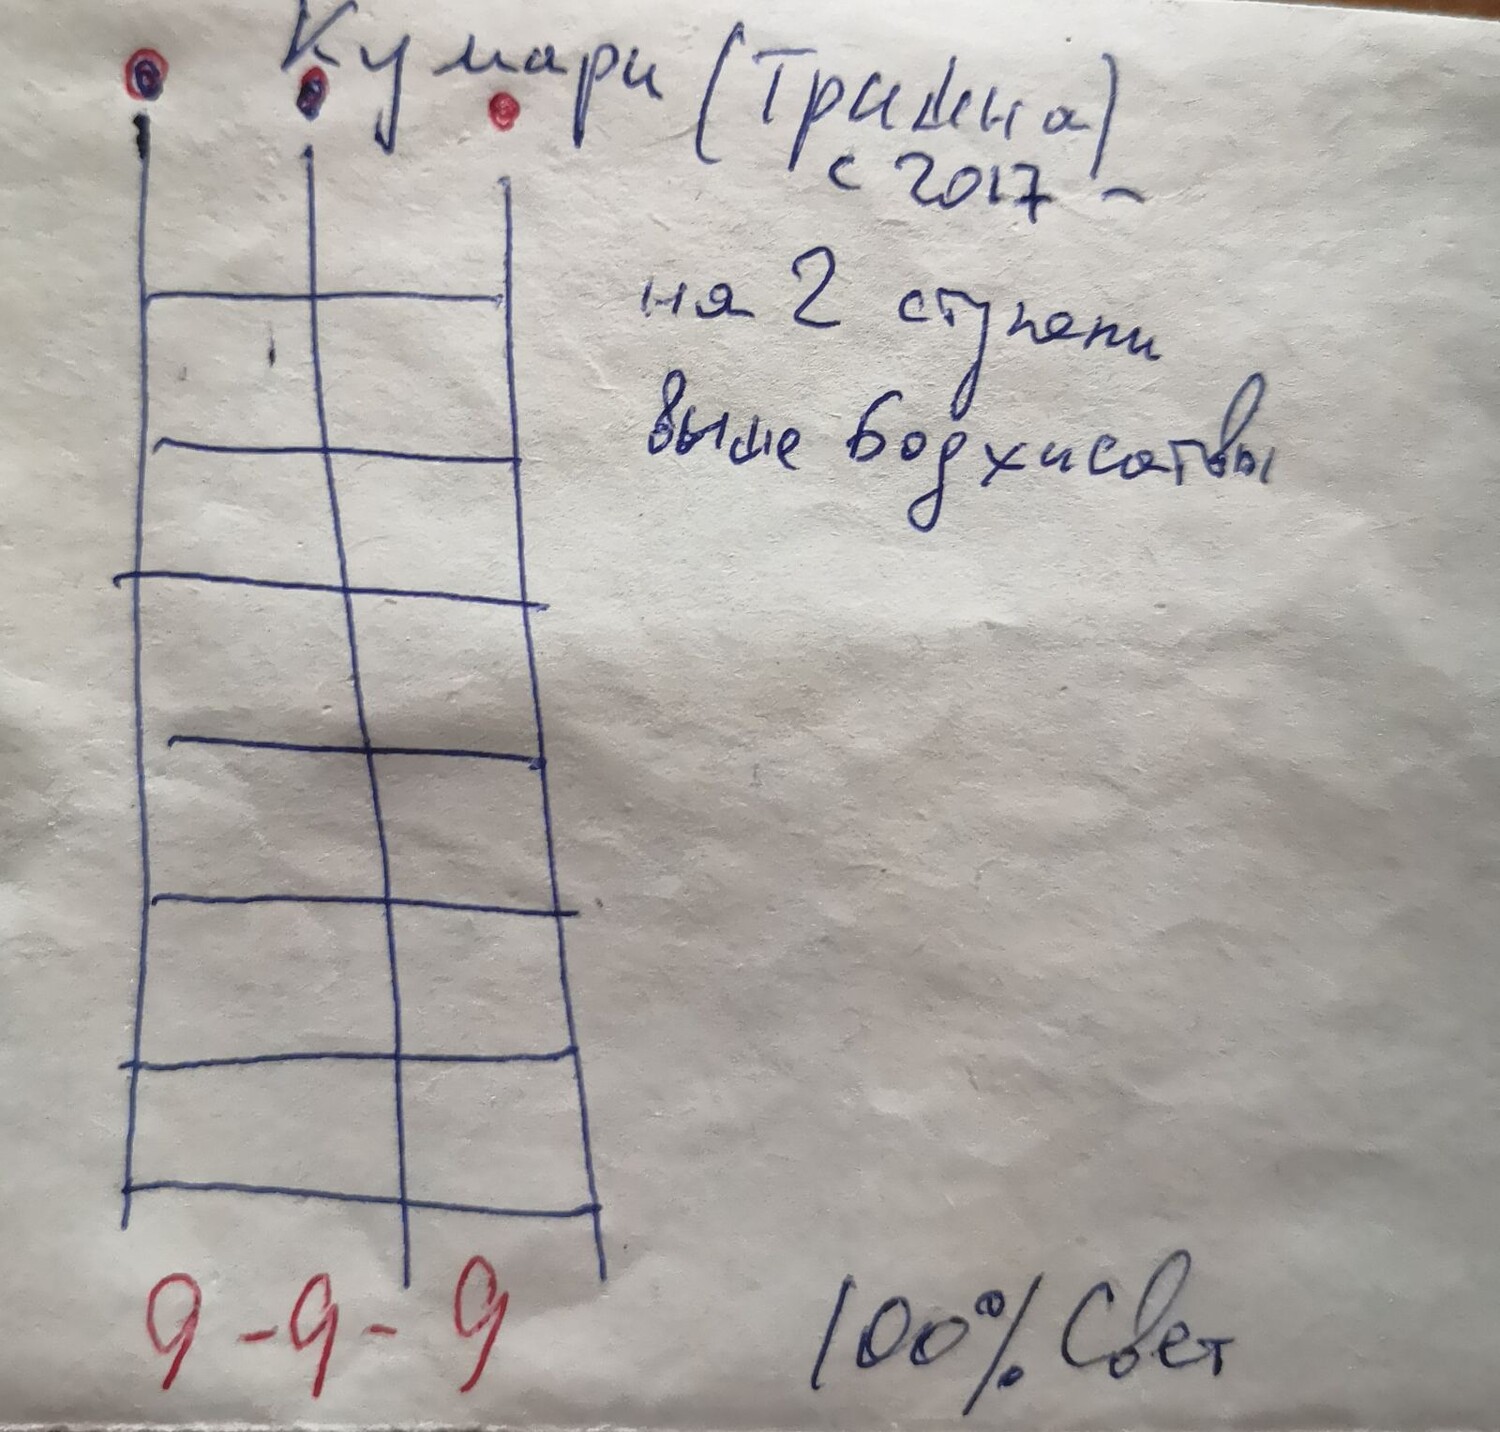 Кумари (Тришна)
с 2017 -
на 2 ступени
выше Бодхисатвы
9 - 9 - 9
100% Свет